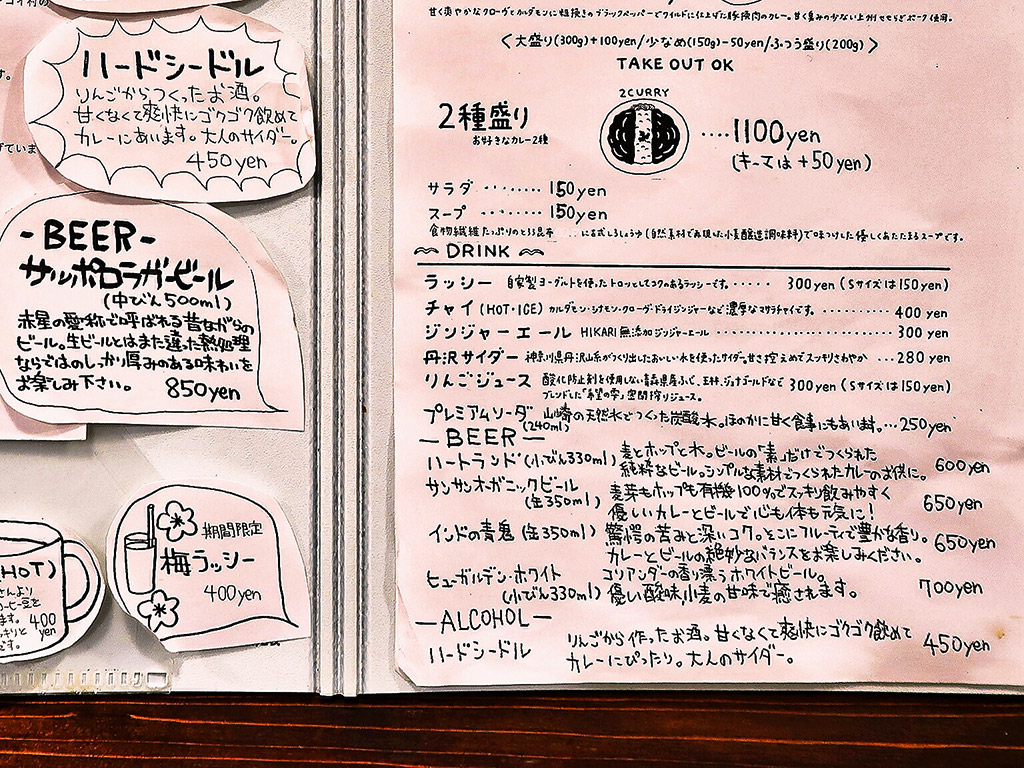 ハードシードル
りんごからつくったお酒。
甘くなくて爽快にゴクゴク飲めて
カレーにあいます。大人のサイダー。
450yen
-BEER-
サッポロラガービール
(中びん500ml)
赤星の愛称で呼ばれる昔ながらの
ビール。生ビールとはまた違った熱処理
ならではのしっかり厚みのある味わいを
お楽しみ下さい。 850yen
期間限定
梅ラッシー
400yen
(HOT)
400
yen
甘く爽やかなクローヴとカルダモンに粗挽きのブラックペッパーでワイルドに仕上げた豚挽肉のカレー。
〈大盛り(300g)+100yen/少なめ(150g)-50yen/ふつう盛り(200g)〉
TAKE OUT OK
2CURRY
2種盛り
お好きなカレー2種
‥‥1100yen
(キーマは+50yen)
サラダ ‥‥‥‥ 150yen
スープ ‥‥‥‥ 150yen
食物繊維たっぷりのとろろ昆布 に古式しょうゆ(自然素材で再現した小麦醸造調味料)で味つけした優しくあたたまるスープです。
DRINK
ラッシー 自家製ヨーグルトを使ったトロッとしてコクのあるラッシーです。‥‥‥ 300yen(Sサイズは150yen)
チャイ(HOT・ICE) カルダモン・シナモン・クローヴ・ドライジンジャーなど濃厚なマサラチャイです。 ‥‥‥ 400 yen
ジンジャーエール HIKARI無添加ジンジャーエール ‥‥‥‥‥‥ 300 yen
丹沢サイダー 神奈川県丹沢山系がつくり出したおいしい水を使ったサイダー。甘さ控えめでスッキリさわやか ‥‥280 yen
りんごジュース 酸化防止剤を使用しない青森県産ふじ、王林、ジョナゴールドなど 300yen(Sサイズは150yen)
ブレンドした「希望の雫」密閉搾りジュース。
プレミアムソーダ 山崎の天然水でつくった炭酸水。ほのかに甘く食事にもあいます。‥‥250yen
(240ml)
—BEER—
ハートランド(小びん330ml) 麦とホップと水。ビールの「素」だけでつくられた
純粋なビール。シンプルな素材でつくられたカレーのお供に。 600yen
サンサンオーガニックビール 麦芽もホップも有機100%でスッキリ飲みやすく
(缶350ml) 優しいカレーとビールで心も体も元気に! 650yen
インドの青鬼(缶350ml) 驚愕の苦みと深いコク。とこにフルーティで豊かな香り。
カレーとビールの絶妙なバランスをお楽しみください。 650yen
ヒューガルデン・ホワイト コリアンダーの香り漂うホワイトビール。
(小びん330ml) 優しい酸味,小麦の甘味で癒されます。 700yen
—ALCOHOL—
ハードシードル りんごから作ったお酒。甘くなくて爽快にゴクゴク飲めて
カレーにぴったり。大人のサイダー。 450yen